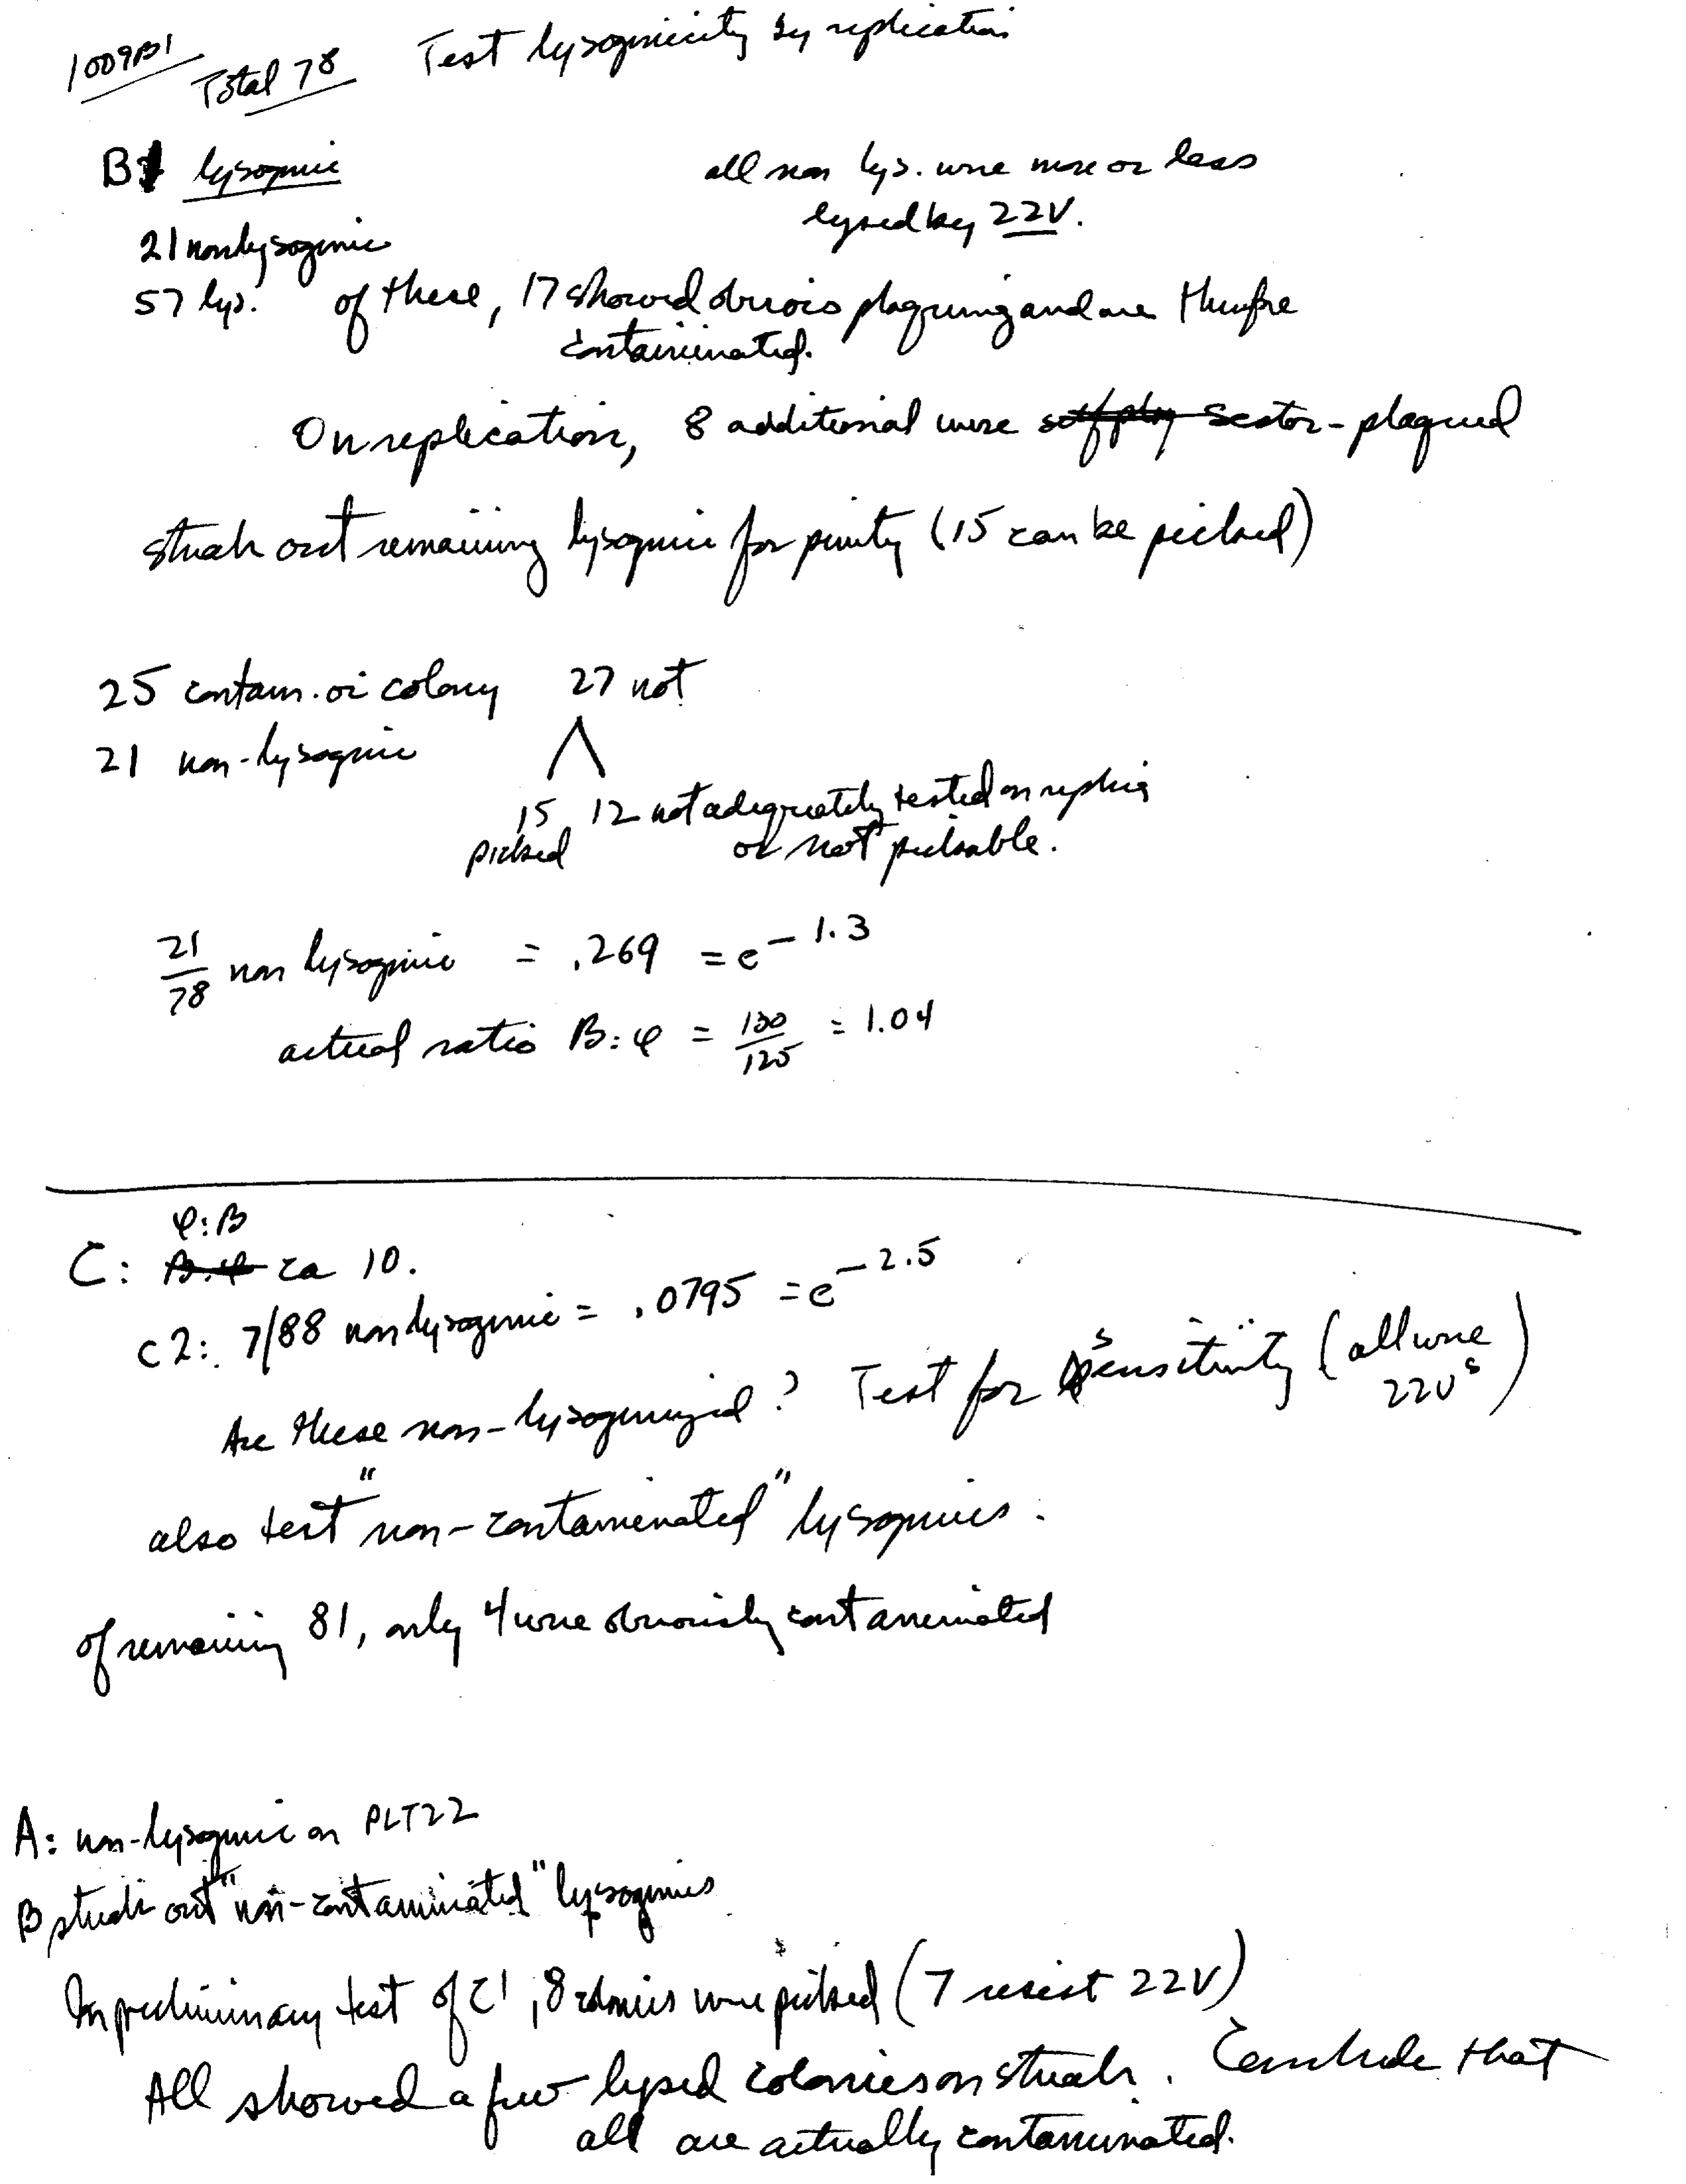 1009B1
Total 78 Test lysogenicity by replication
B lysogenic
all non lys. were more or less
lysed by 22V.
21 nonlysogenic
57 lys. of these, 17 showed obvious plaquing and are therefore
contaminated.
On replication, 8 additional were sector-plaqued
streak out remaining lysogenic for purity (15 can be picked)
25 contam. or colony 27 not
21 non-lysogenic
15 12 not adequately tested on replica
picked or not pickable.
21/78 non lysogenic = .269 = e^-1.3
actual ratio B:φ = 130/125 = 1.04
φ:B
C: B:φ ca 10.
C2: 7/88 nonlysogenic = .0795 = e^-2.5
Are these non-lysogenized? Test for sensitivity (all were
22V^s)
also test "non-contaminated" lysogenics.
of remaining 81, only 4 were obviously contaminated
A: non-lysogenic on PLT22
B streak out "non-contaminated" lysogenics
In preliminary test of C1, 8 colonies were picked (7 resist 22V)
All showed a few lysed colonies on streak. Conclude that
all are actually contaminated.